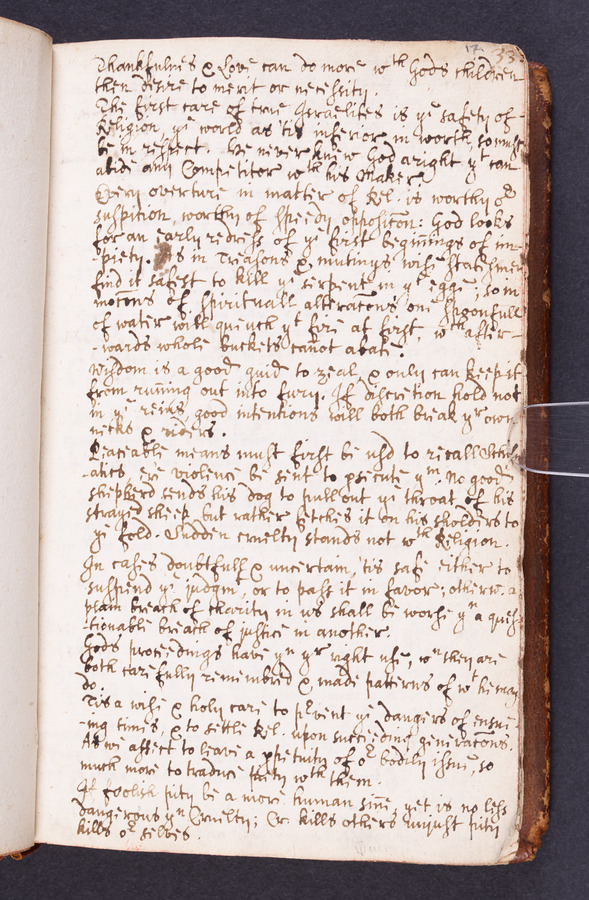 17 33
Thankfulnes & Love can do more wth Gods children
then desire to merit or necessity.
The first care of true Israelites is ye safety of
Religion, ye world as 'tis inferior in worth, so must
be in respect. He never knew God aright yt can
abide any Competitor wth his Maker.
Every overture in matter of Rel. is worthy of
suspition, worthy of speedy oppositon: God looks
for an early redress of ye first beginings of im-
-piety. As in Treasons & mutinys wise statesmen
find it safest to kill ye serpent in ye egge, so in
motons of spirituall alteratons, one spoonfull
of water will quench yt fire at first, wch after-
-wards whole buckets canot abate.
Wisdom is a good guid to zeal & only can keep it
from runing out into fury. If discretion hold not
in ye reins, good intentions will both break yr own
necks & riders.
Peaceable means must first be usd to recall Schis-
-atics ere violence be sent to psecute ym. No good
shepherd sends his dog to pull out ye throat of his
strayed sheep, but rather fetches it on his sholders to
ye fold. Sudden cruelty stands not wth Religion.
In cases doubtfull & uncertain, 'tis safe either to
suspend ye judgmt, or to pass it in favor; otherw. a
plain breach of charity in us shall be worse yn a ques-
-tionable breach of justice in another.
Gods proceedings have yn yr right use, wn they are
both carefully remembred & made patterns of wt he may
do.
Tis a wise & holy care to prvent ye dangers of ensue-
-ing times, & to settle Rel. upon succeeding generatons.
As we affect to leave a ppetuity of or bodily issue, so
much more to traduce piety wth them.
If foolish pity be a more human sine, yet is no less
dangerous yn Cruelty; Cr. kills others unjust pity
kills or selves.